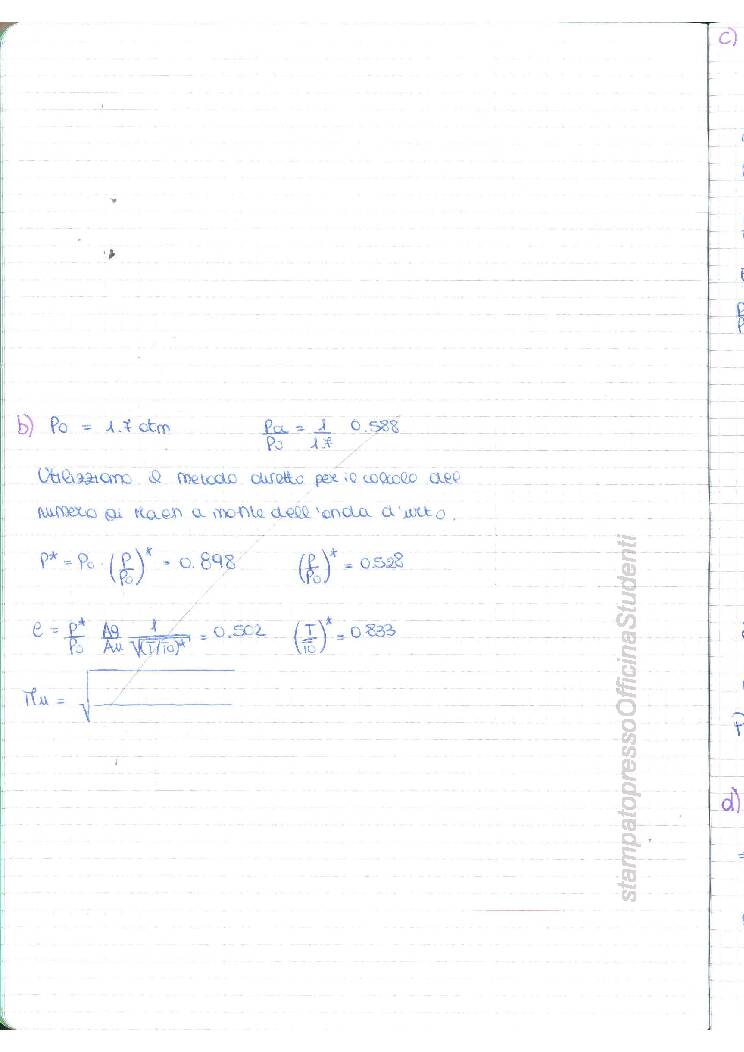 b) P0 = 1.7 atm    Pa/P0 = 1/1.7    0.588
Utilizziamo il metodo diretto per il calcolo del
numero di Mach a monte dell'onda d'urto.
P* = P0 · (P/P0)* = 0.898    (P/P0)* = 0.528
e = P*/P0 Ag/Au 1/√(T/T0)* = 0.502    (T/T0)* = 0.833
Mu = √
stampatopressoOfficinaStudenti
c)
d)